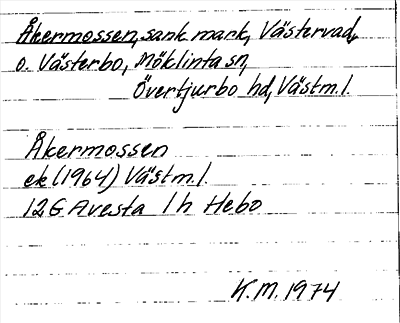 Åkermossen, sank mark, Västervad,
o. Västerbo, Möklinta sn,
Övertjurbo hd, Västm. l.
Åkermossen
ek (1964) Västm. l.
12G Avesta 1h Hebo
K.M. 1974